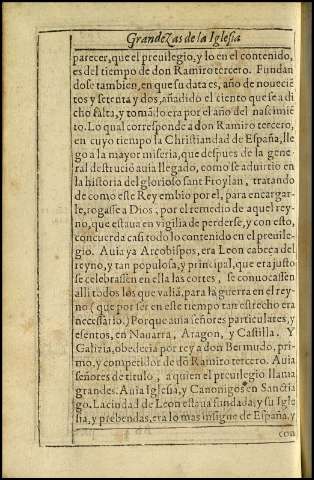 Grandezas de la Iglesia
parecer, que el preuilegio, y lo en el contenido,
es del tiempo de don Ramiro tercero. Fundan
dose tambien, en que su data es, año de nouecie͂
tos y setenta y dos, añadido el ciento que se a di
cho falta, y toma͂do era por el año del nascimie͂
to. Lo qual corresponde a don Ramiro tercero,
en cuyo tiempo la Christiandad de España, lle
go a la mayor miseria, que despues de la gene
ral destrució auia llegado, como se aduirtio en
la historia del glorioso sant Froylan, tratando
de como este Rey embio por el, para encargar-
le, rogasse a Dios, por el remedio de aquel rey-
no, que estaua en vigilia de perderse, y con esto,
concuerda casi todo lo contenido en el preuile-
gio. Auia ya Arçobispos, era Leon cabeça del
reyno, y tan populosa, y principal, que era justo
se celebrassen en ella las cortes, se conuocassen
alli todos los que valiã, para la guerra en el rey-
no (que por ser en este tiempo tan estrecho era
necessario.) Porque auia señores particulares, y
esentos, en Nauarra, Aragon, y Castilla. Y
Galizia, obedecia por rey a don Bermudo, pri-
mo, y competidor de dõ Ramiro tercero. Auia
señores de titulo, a quien el preuilegio llama
grandes. Auia Iglesia, y Canonigos en Sanctia
go. La ciudad de Leon estaua fundada, y su Igle
sia, y prebendas, era lo mas insigne de España, y
con